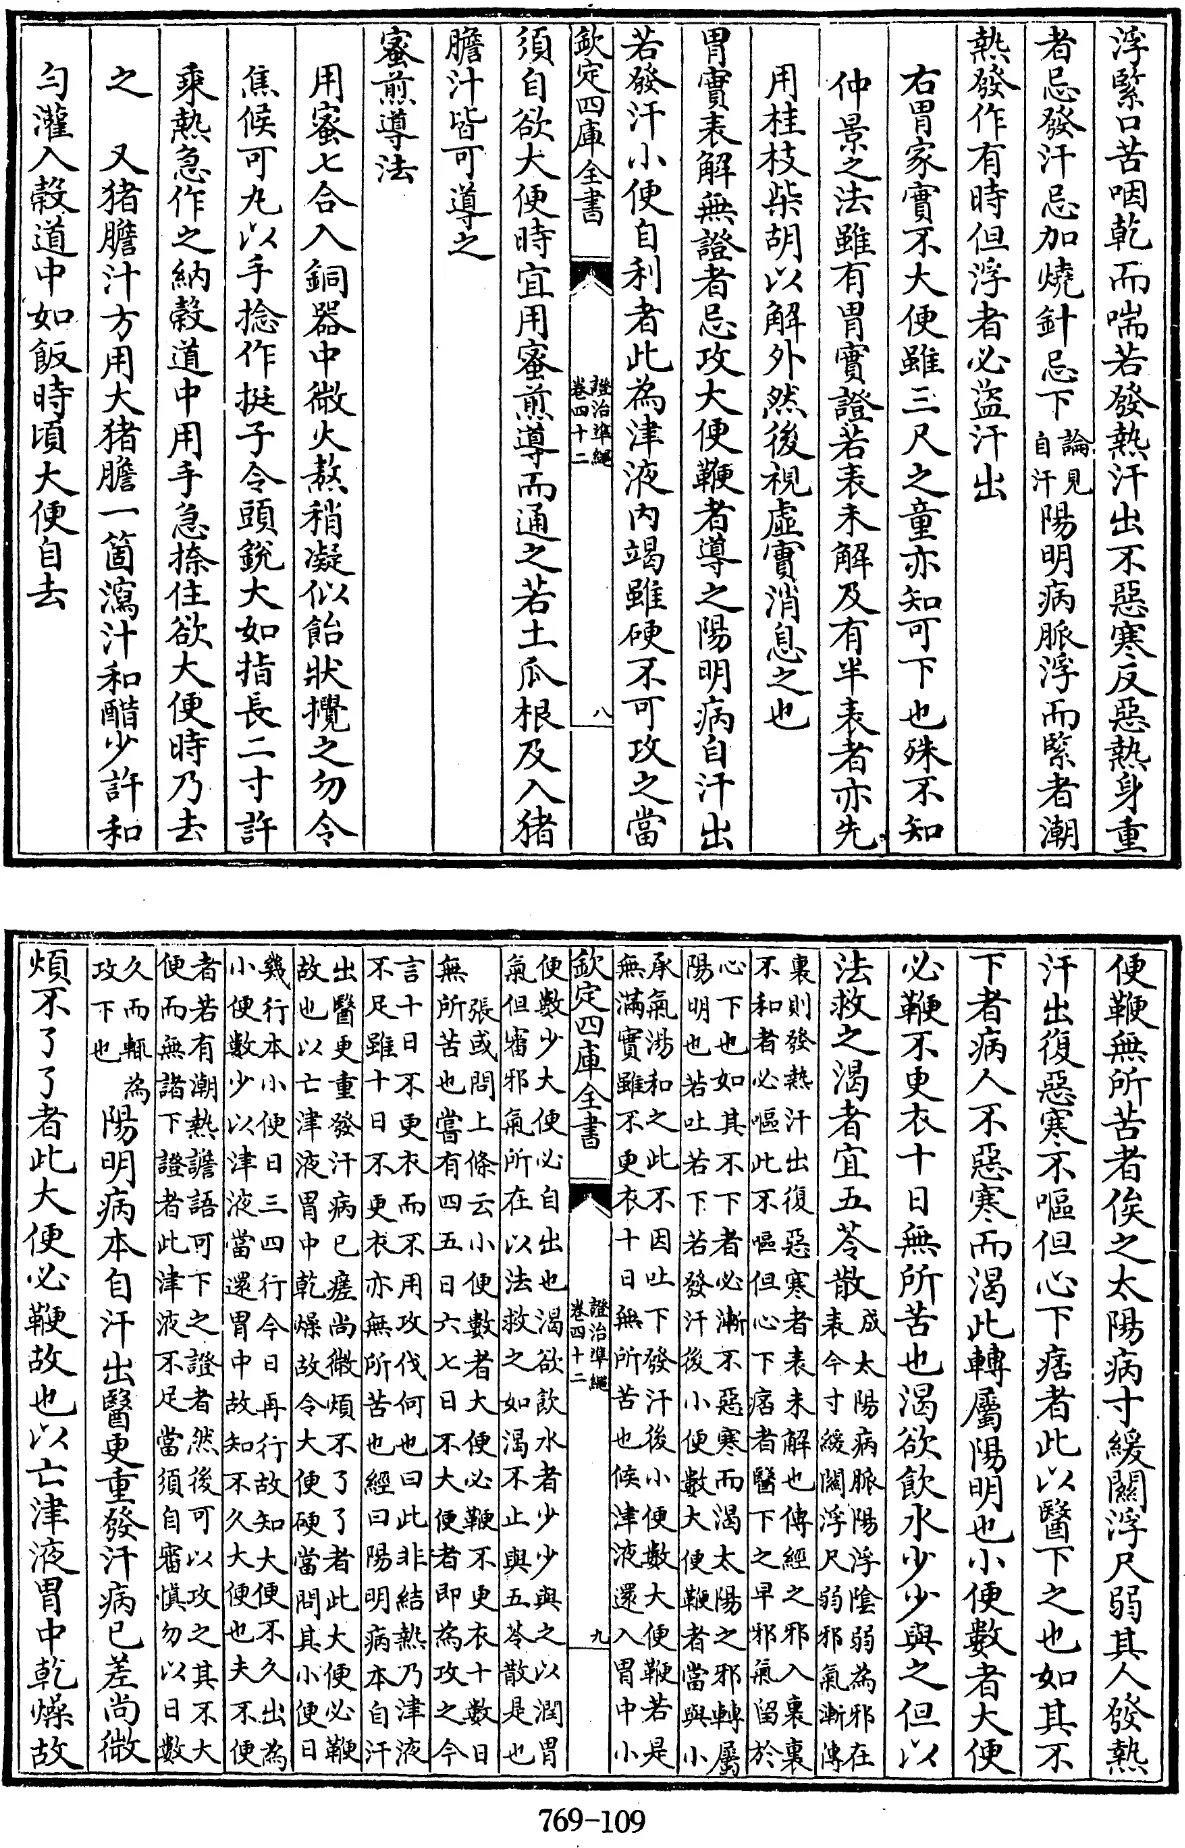 浮緊口苦咽乾而喘若發熱汗出不惡寒反惡熱身重
者忌發汗忌加燒針忌下論見自汗陽明病脈浮而緊者潮
熱發作有時但浮者必盜汗出
右胃家實不大便雖三尺之童亦知可下也殊不知
仲景之法雖有胃實證若表未解及有半表者亦先
用桂枝柴胡以解外然後視虛實消息之也
胃實表解無證者忌攻大便鞕者導之陽明病自汗出
若發汗小便自利者此為津液內竭雖硬不可攻之當
欽定四庫全書
證治準繩
卷四十二
八
須自欲大便時宜用蜜煎導而通之若土瓜根及入猪
膽汁皆可導之
蜜煎導法
用蜜七合入銅器中微火熬稍凝似飴狀攪之勿令
焦候可丸以手捻作挺子令頭銳大如指長二寸許
乘熱急作之納穀道中用手急捺住欲大便時乃去
之 又猪膽汁方用大猪膽一箇瀉汁和醋少許和
勻灌入穀道中如飯時頃大便自去
便鞕無所苦者俟之太陽病寸緩關浮尺弱其人發熱
汗出復惡寒不嘔但心下痞者此以醫下之也如其不
下者病人不惡寒而渴此轉屬陽明也小便數者大便
必鞕不更衣十日無所苦也渴欲飲水少少與之但以
法救之渴者宜五苓散成太陽病脈陽浮陰弱為邪在
表今寸緩關浮尺弱邪氣漸傳
裏則發熱汗出復惡寒者表未解也傳經之邪入裏裏
不和者必嘔此不嘔但心下痞者醫下之早邪氣留於
心下也如其不下者必漸不惡寒而渴太陽之邪轉屬
陽明也若吐若下若發汗後小便數大便鞕者當與小
承氣湯和之此不因吐下發汗後小便數大便鞕若是
無滿實雖不更衣十日無所苦也候津液還入胃中小
欽定四庫全書
證治準繩
卷四十二
九
便數少大便必自出也渴欲飲水者少少與之以潤胃
氣但審邪氣所在以法救之如渴不止與五苓散是也
張或問上條云小便數者大便必鞕不更衣十數日
無所苦也嘗有四五日六七日不大便者即為攻之今
言十日不更衣而不用攻伐何也曰此非結熱乃津液
不足雖十日不更衣亦無所苦也經曰陽明病本自汗
出醫更重發汗病已瘥尚微煩不了了者此大便必鞕
故也以亡津液胃中乾燥故令大便硬當問其小便日
幾行本小便日三四行今日再行故知大便不久出為
小便數少以津液當還胃中故知不久大便也夫不便
者若有潮熱譫語可下之證者然後可以攻之其不大
便而無諸下證者此津液不足當須自審慎勿以日數
久而輒為
攻下也陽明病本自汗出醫更重發汗病已差尚微
煩不了了者此大便必鞕故也以亡津液胃中乾燥故
769-109